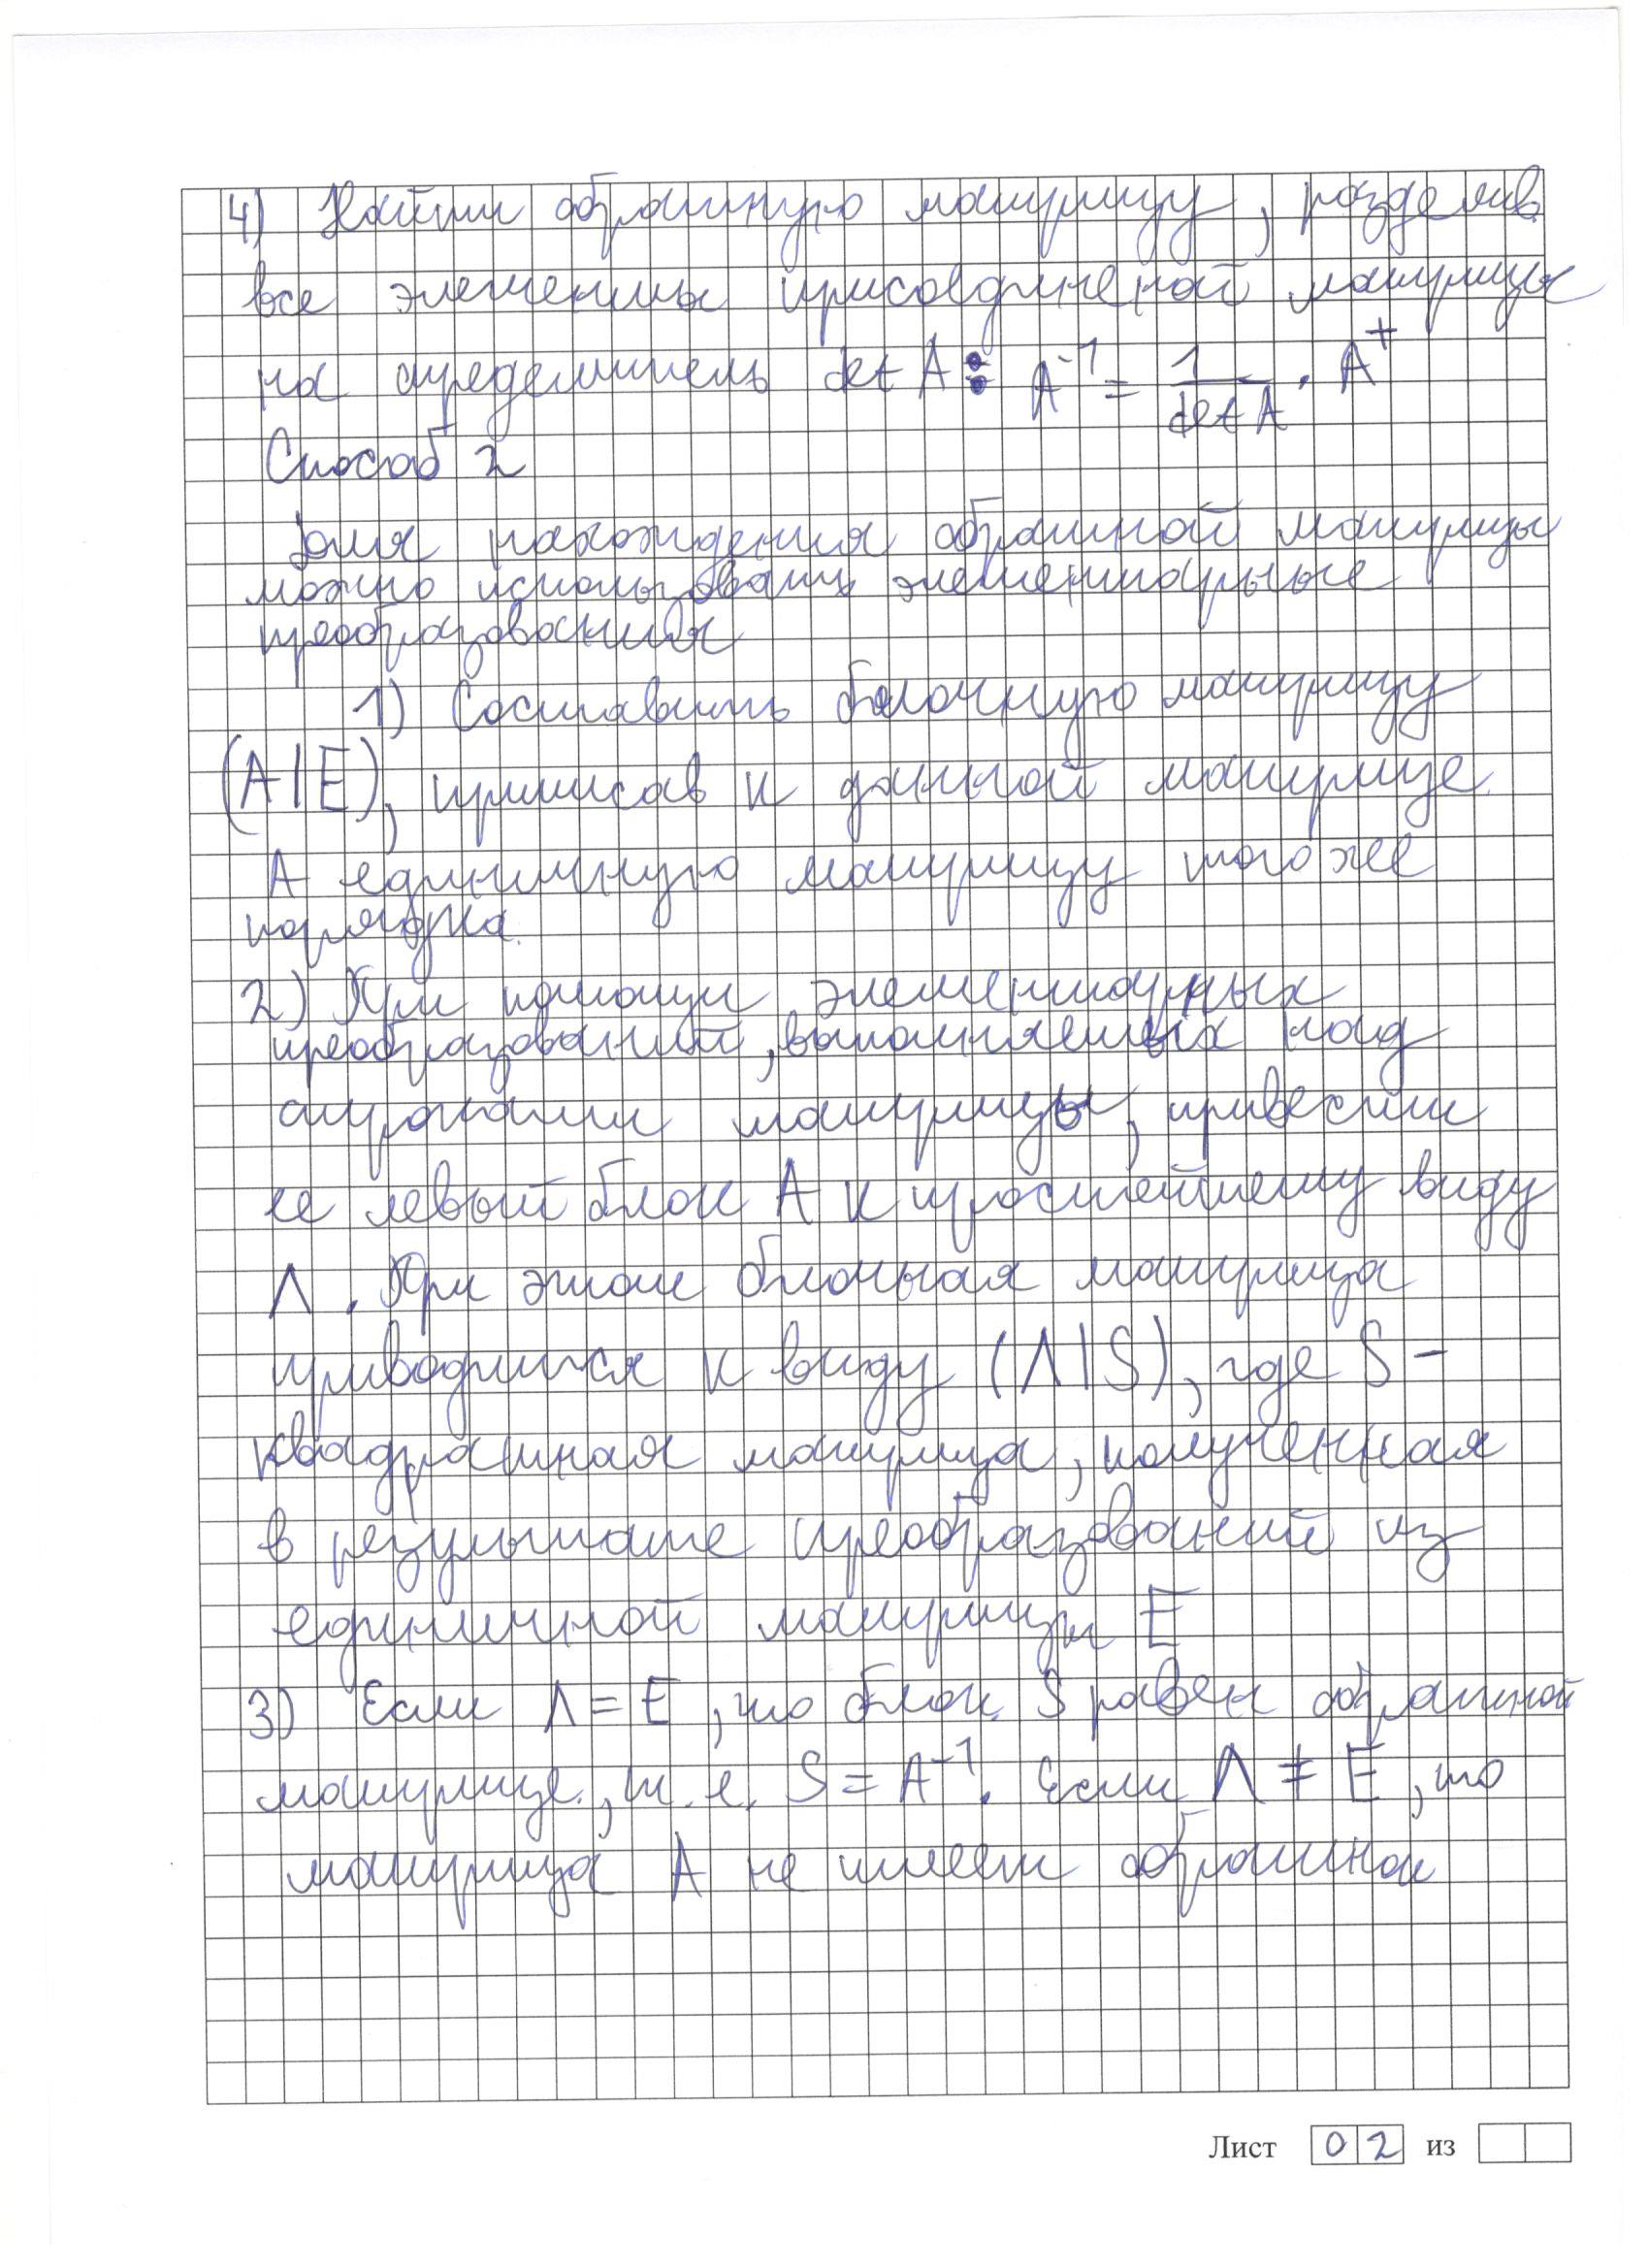 4) Найти обратную матрицу, разделив
все элементы присоединеной матрицы
на определитель det A: A⁻¹ = 1/det A · A⁺
Способ 2
Для нахождения обратной матрицы
можно использовать элементарные
преобразования
1) Составить блочную матрицу
(A|E), приписав к данной матрице
A единичную матрицу того же
порядка.
2) При помощи элементарных
преобразований, выполняемых над
строками матрицы, привести
ее левый блок A к простейшему виду
Λ. При этом блочная матрица
приводится к виду (Λ|S), где S -
квадратная матрица, полученная
в результате преобразований из
единичной матрицы E
3) Если Λ = E, то блок S равен обратной
матрице, т.е. S = A⁻¹. Если Λ ≠ E, то
матрица A не имеет обратной
Лист 02 из